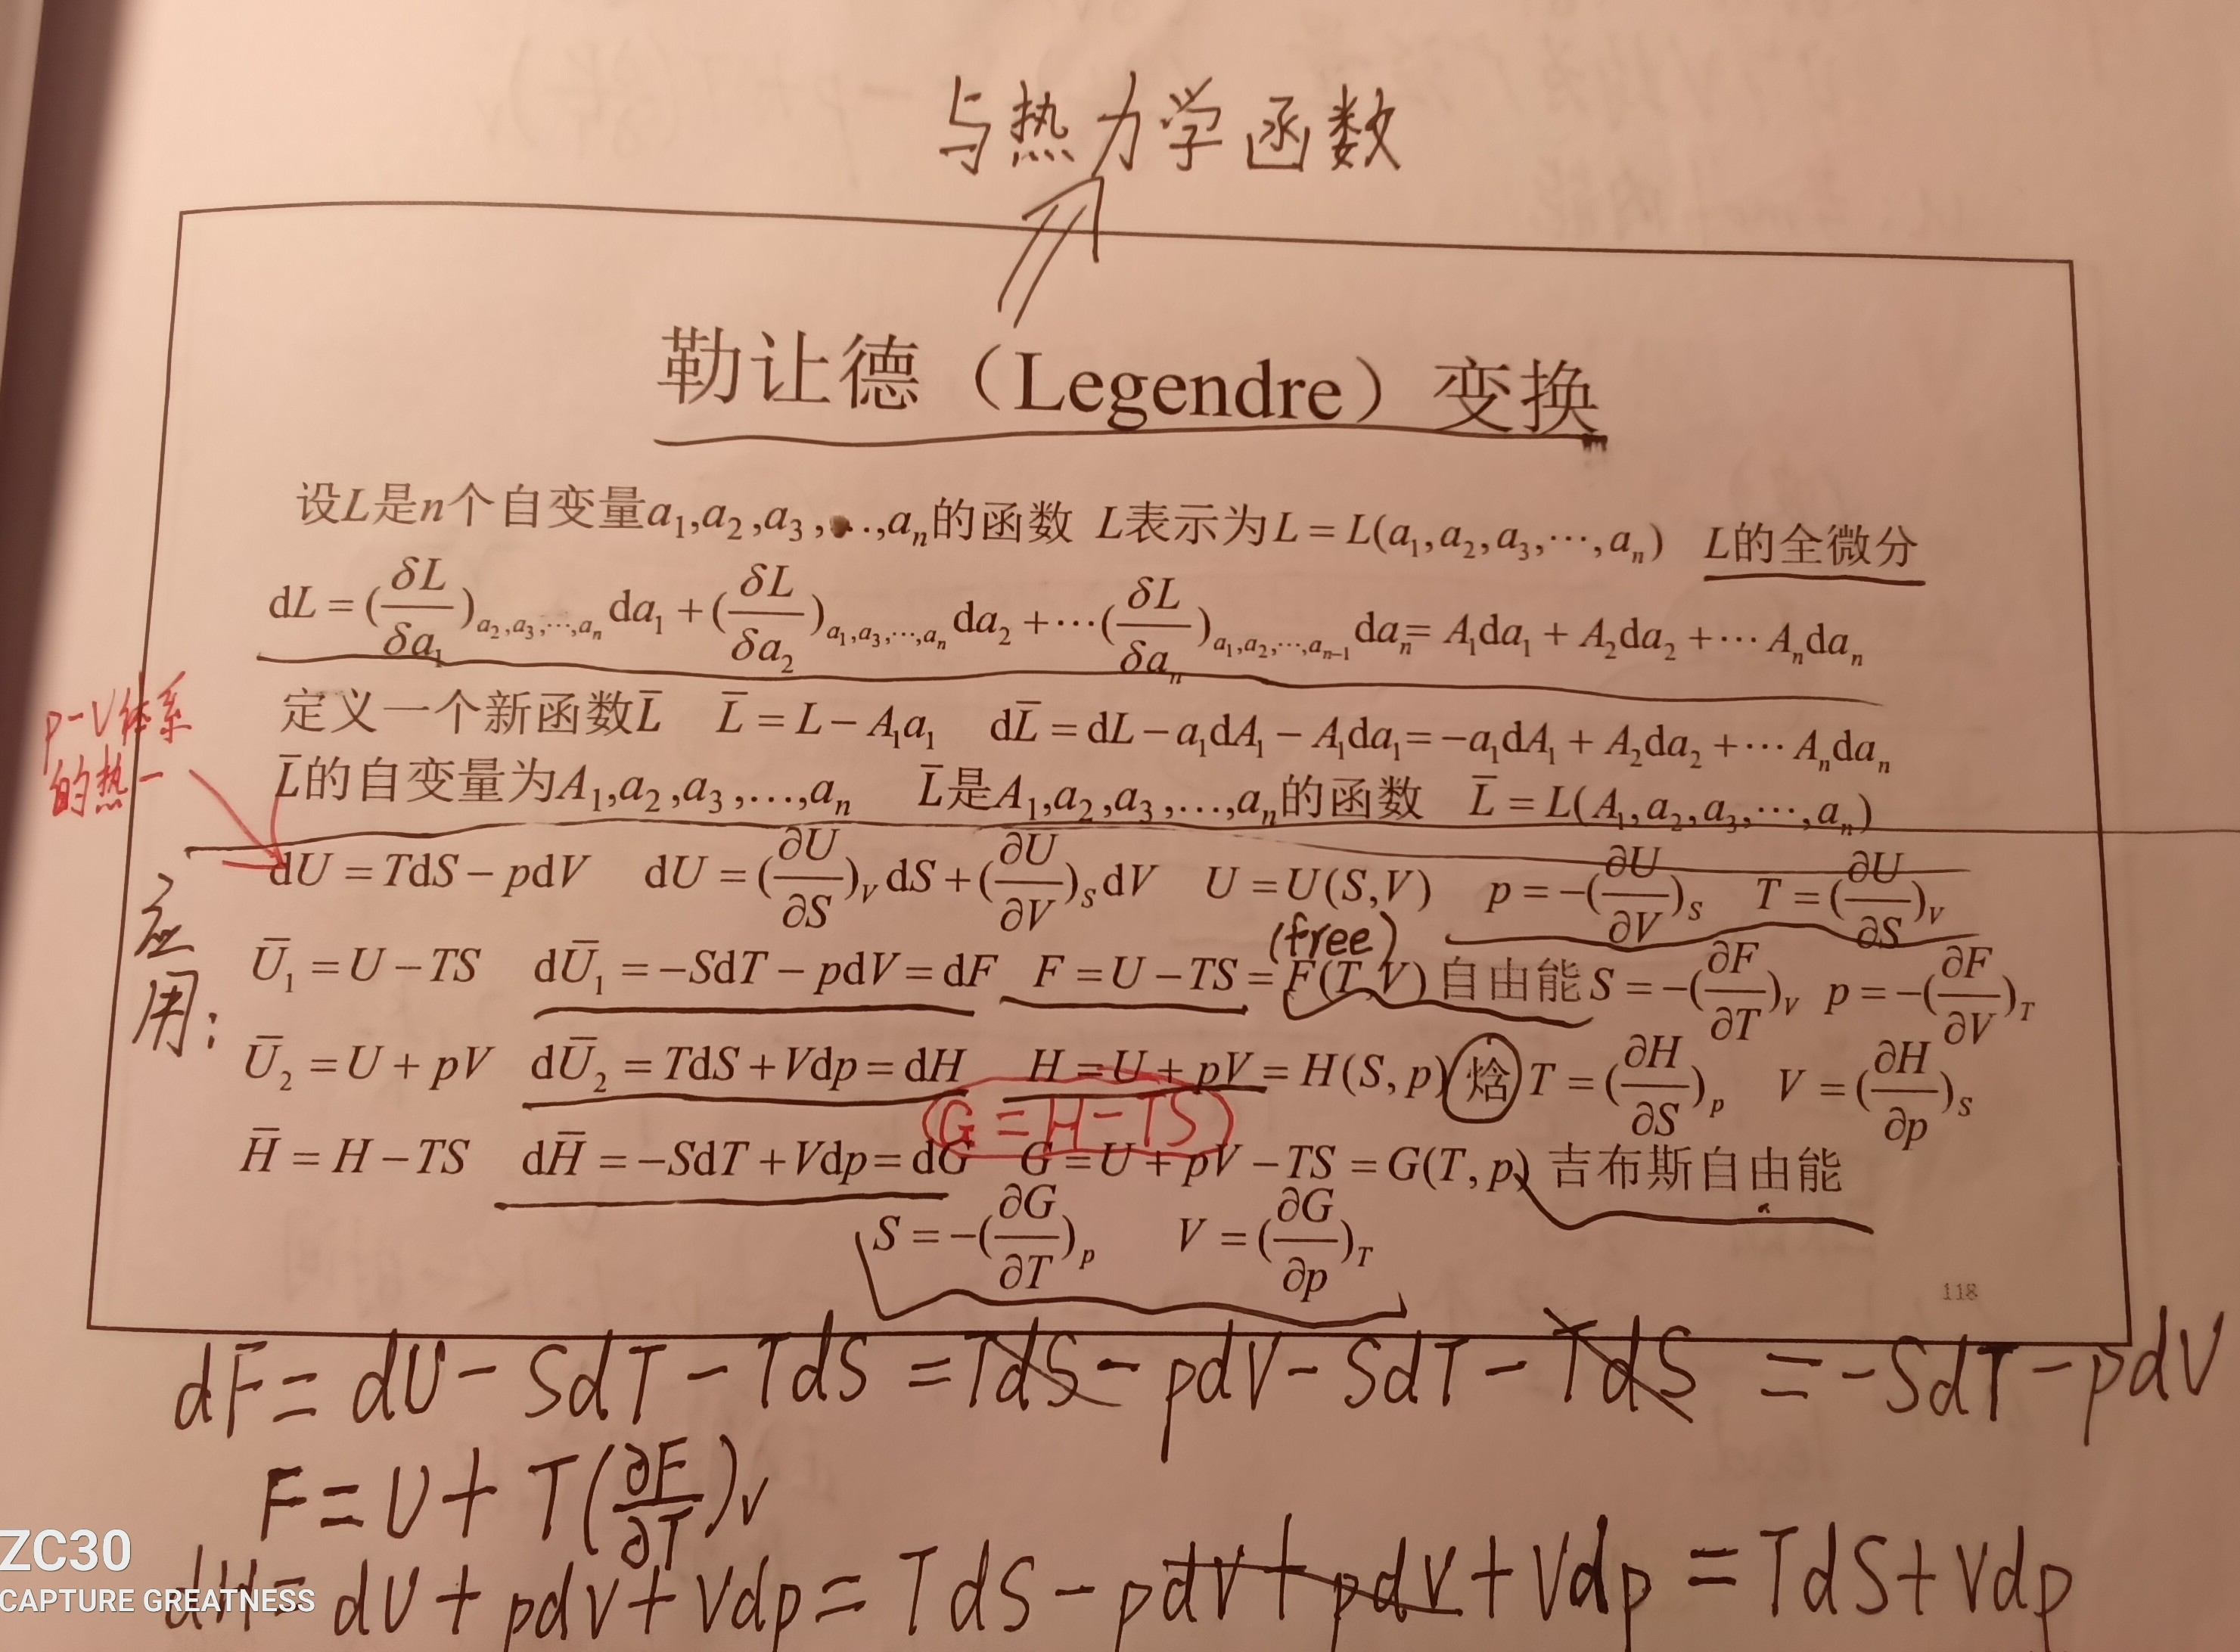 与热力学函数
勒让德（Legendre）变换
设L是n个自变量a₁,a₂,a₃,…,aₙ的函数 L表示为L = L(a₁,a₂,a₃,⋯,aₙ) L的全微分
dL = (δL/δa₁)a₂,a₃,⋯,aₙ da₁ + (δL/δa₂)a₁,a₃,⋯,aₙ da₂ + ⋯(δL/δaₙ)a₁,a₂,⋯,aₙ₋₁ daₙ = A₁da₁ + A₂da₂ + ⋯Aₙdaₙ
p-V体系
的热一
定义一个新函数L̄ L̄ = L − A₁a₁ dL̄ = dL − a₁dA₁ − A₁da₁ = −a₁dA₁ + A₂da₂ + ⋯Aₙdaₙ
L̄的自变量为A₁,a₂,a₃,…,aₙ L̄是A₁,a₂,a₃,…,aₙ的函数 L̄ = L(A₁,a₂,a₃,⋯,aₙ)
应用:
dU = TdS − pdV dU = (∂U/∂S)V dS + (∂U/∂V)S dV U = U(S,V) p = −(∂U/∂V)S T = (∂U/∂S)V
(free)
Ū₁ = U − TS dŪ₁ = −SdT − pdV = dF F = U − TS = F(T,V) 自由能 S = −(∂F/∂T)V p = −(∂F/∂V)T
Ū₂ = U + pV dŪ₂ = TdS + Vdp = dH H = U + pV = H(S,p) 焓 T = (∂H/∂S)p V = (∂H/∂p)S
G = H − TS
H̄ = H − TS dH̄ = −SdT + Vdp = dG G = U + pV − TS = G(T,p) 吉布斯自由能
S = −(∂G/∂T)p V = (∂G/∂p)T
118
dF = dU − SdT − TdS = TdS − pdV − SdT − TdS = −SdT − pdV
F = U + T(∂F/∂T)V
dH = dU + pdV + Vdp = TdS − pdV + pdV + Vdp = TdS + Vdp
ZC30
CAPTURE GREATNESS